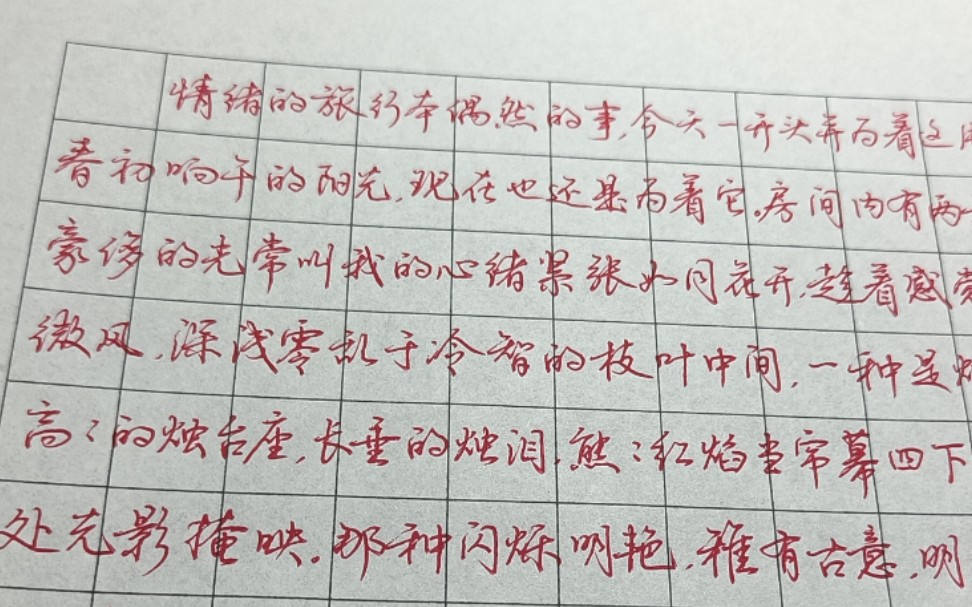 情绪的旅行本偶然的事,今天一开头并为着这
春初晌午的阳光,现在也还是为着它。房间内有两
豪侈的光常叫我的心绪紧张如同花开,趁着感觉
微风,深浅零乱于冷智的枝叶中间,一种是烛
高高的烛台座,长垂的烛泪,熊熊红焰当帘幕四下
处光影掩映。那种闪烁明艳,雅有古意,明